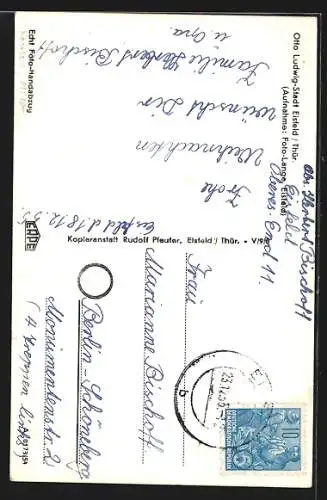 Otto Ludwig-Stadt Eisfeld / Thür.
(Aufnahme: Foto-Lange, Eisfeld)
Echt Foto-Handabzug
Abs. Herbert Bischoff
Eisfeld
Oberes End 11.
Eisfeld d. 18.12.55
Frohe
Weihnachten
wünscht Dir
Familie Herbert Bischoff
u. Opa.
Kopieranstalt Rudolf Pfeufer, Eisfeld / Thür. - V/9/6
Frau
Marianne Bischoff
Berlin-Schöneberg
Monumentenstr. 2
(4 Treppen links)
10
DEUTSCHE
DEMOKRATISCHE
REPUBLIK
b